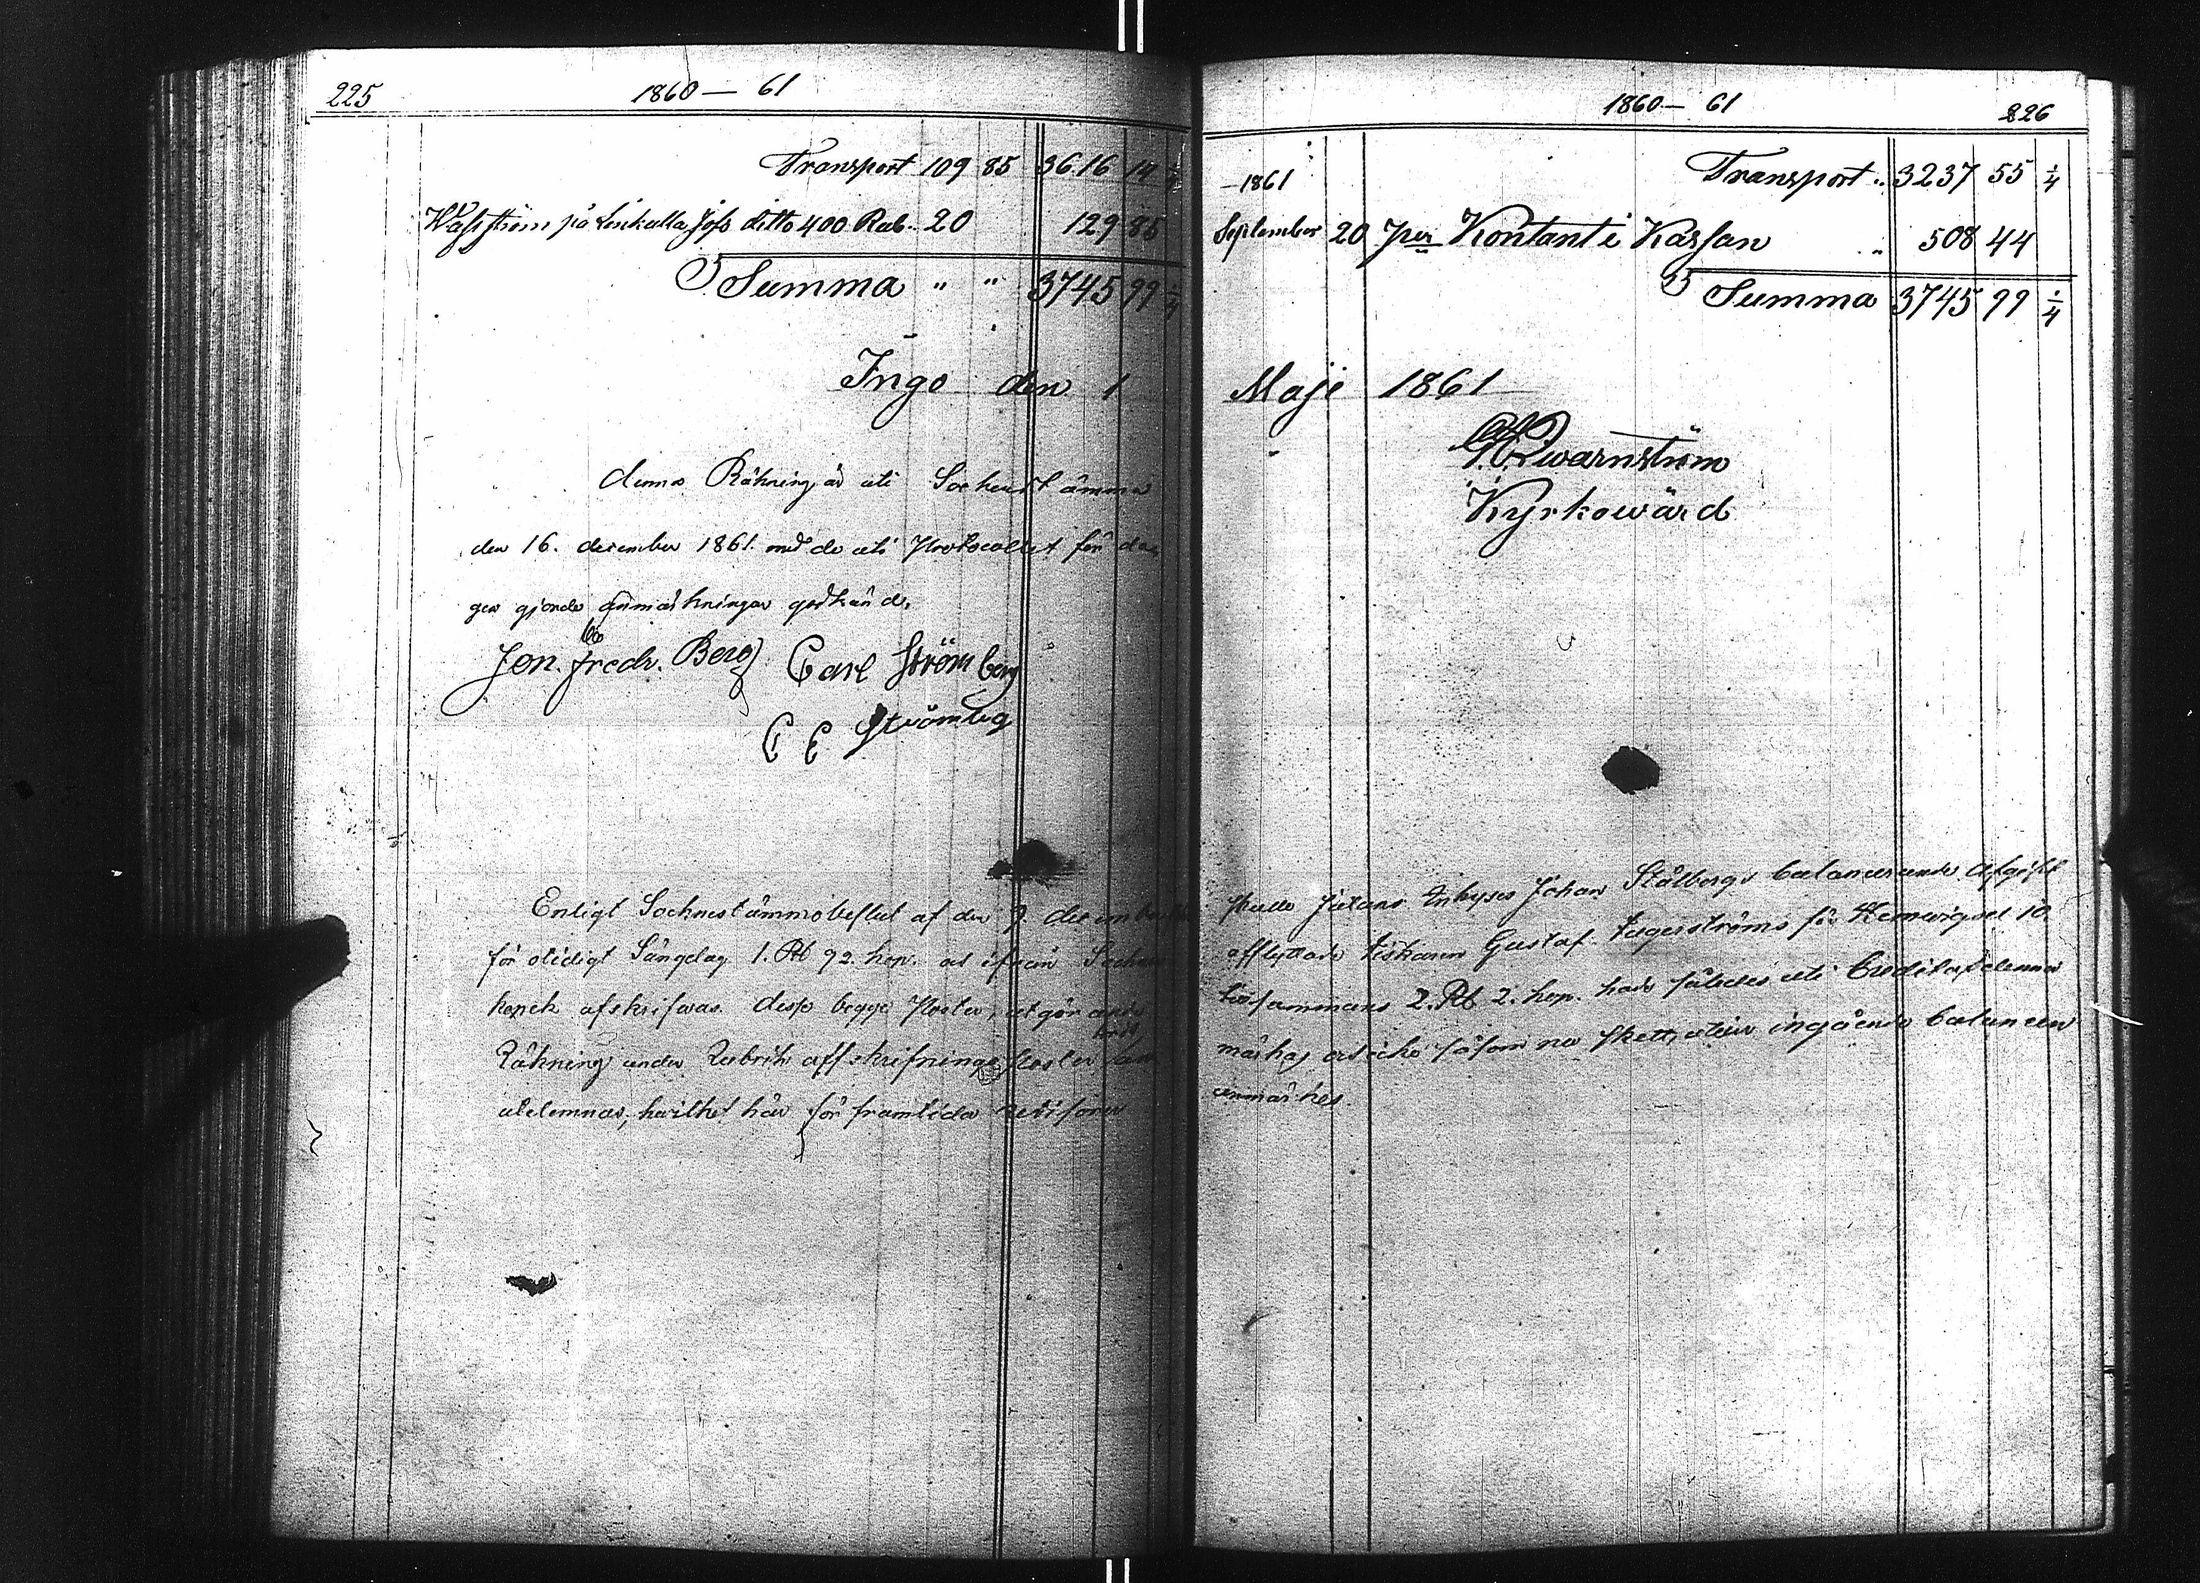 225
1860 — 61
Transport 109 85 3616 14 1/4
Wahlström på Linkulla ditto 400 Rub. 20 129 85
Summa " " 3745 99 1/4
Ingo den 1
denna Räkning är uti Sockenstämma
den 16. december 1861. med de uti Protocollet för da-
gen gjorde anmärkningar godkänd.
Jon. Fredr. Berg Carl Strömberg
C E Strömberg
Enligt Sockenstämmobeslut af den 9 december
för olidigt Sångdag 1. Rb 92. kop. at ifrån Socken
afskrifvas. desse begge Poster, utgör
Räkning under Rubrik affskrifnings Poster
utelemnas, hvilket här för framtida
1860 — 61
226
1861 Transport " 3237 55 1/4
September 20 per Kontant i Kassan " 508 44
Summa 3745 99 1/4
Maji 1861
Qwarnström
Kyrkowärd
Inhyses Johan Stålbergs balancerande Afgift
afflyttade Gustaf för Hemwigsel 10.
tillsammans 2. Rb 2. kop. har således uti Credit utelemnas
såsom nu skett, utur ingående balancen
anmärkes.